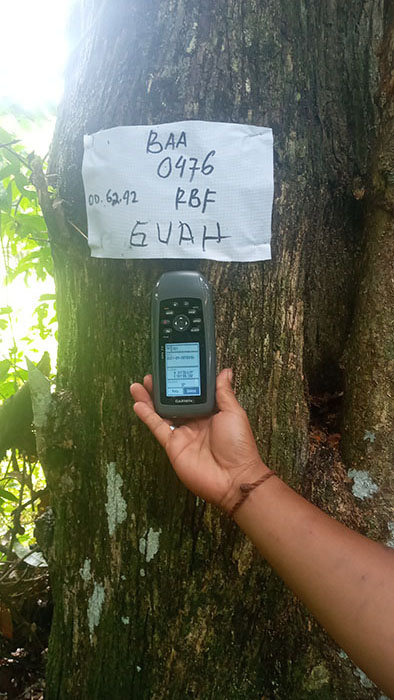 BAA
0476
00.62.92 RBF
GUAH
GARMIN